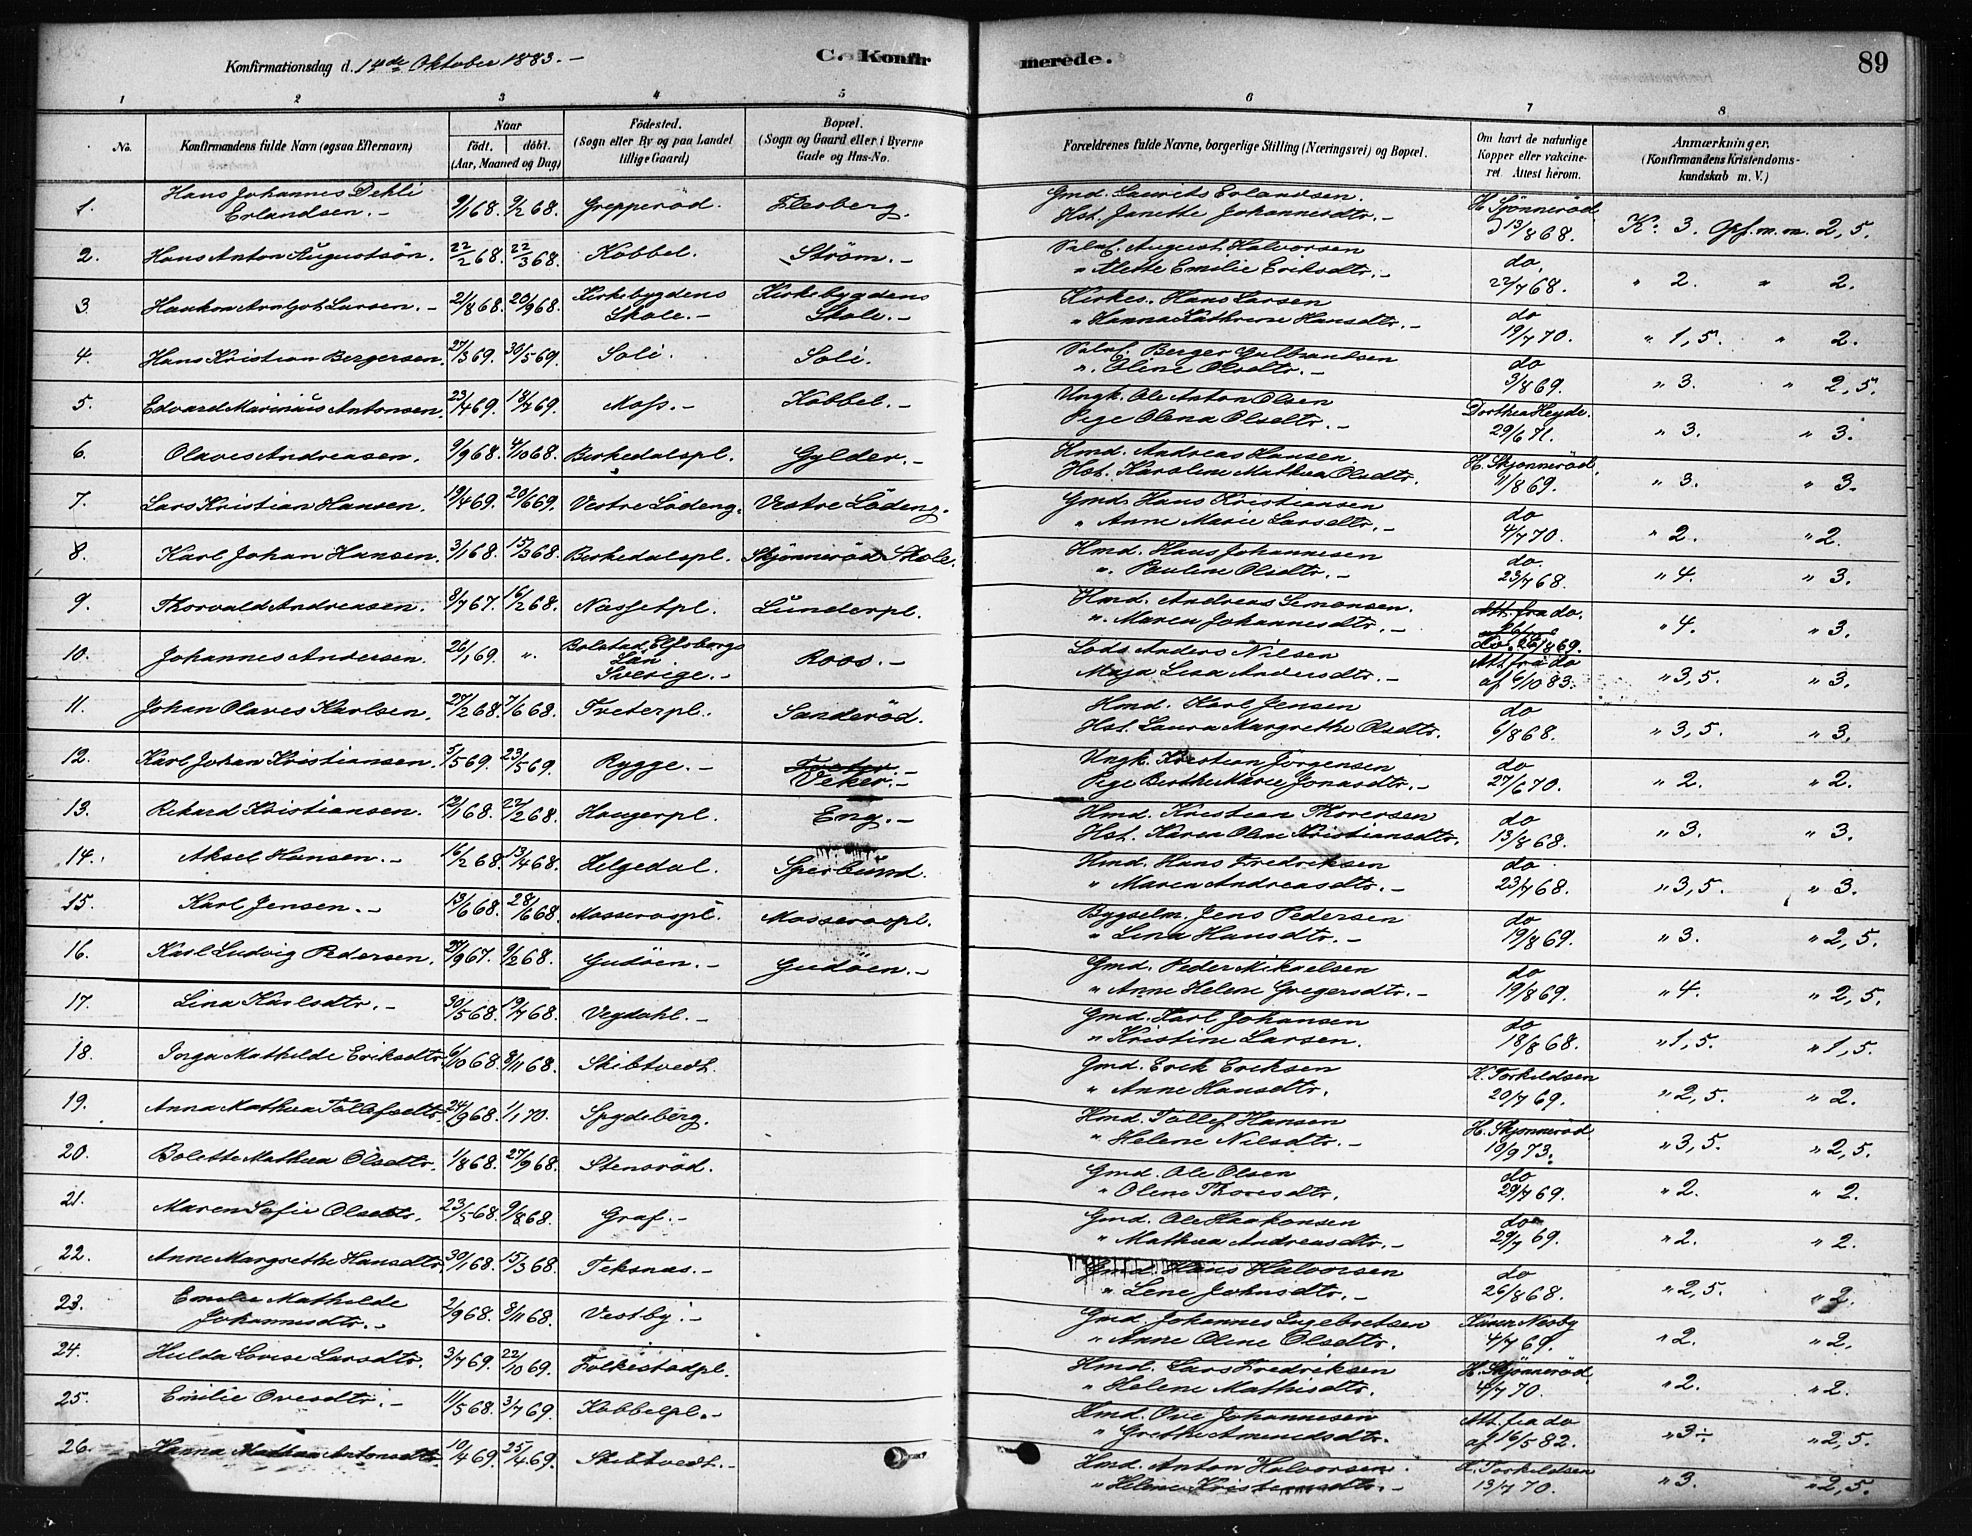 Konfirmationsdag d. 14de Oktober 1883. –
C. Konfirmerede.
89
1 2 3 4 5 6 7 8
No.
Konfirmandens fulde Navn (ogsaa Efternavn)
Naar
født. døbt.
(Aar, Maaned og Dag)
Fødested.
(Sogn eller By og paa Landet
tillige Gaard)
Bopæl.
(Sogn og Gaard eller i Byerne
Gade og Hus-No.
Forældrenes fulde Navne, borgerlige Stilling (Næringsvei) og Bopæl.
Om havt de naturlige
Kopper eller vakcine-
ret. Attest herom.
Anmærkninger.
(Konfirmandens Kristendoms-
kundskab m. V.)
1. Hans Johannes Dehli
Erlandsen. – 9/1 68. 9/2 68. Grepperöd. Flesberg.
Gmd. Laurits Erlandsen.
Hst. Janette Johannesdtr. –
H. Sjönneröd
13/8 68. K. 3. Opf. m. m. 2,5.
2. Hans Anton Augustsön. 22/2 68. 22/3 68. Kobbel. Ström. –
Selvf. August Halvorsen
" Alette Emilie Eriksdtr. –
do.
22/7 68. " 2. " 2.
3. Haakon Arnljot Larsen. – 21/8 68. 20/9 68. Kirkebygdens
Skole. – Kirkebygdens
Skole. –
Kirkes. Hans Larsen
" Hanna Kathrine Hansdtr. –
do
19/7 70. " 1,5. " 2.
4. Hans Kristian Bergersen. 27/3 69. 30/5 69. Soli. Soli.
Selvf. Berger Gulbrandsen
". Oline Olsdtr. –
do
3/8 69. " 3. " 2,5.
5. Edvard Marinius Antonsen. 23/4 69. 18/7 69. Moss. – Kobbel. –
Ungk. Ole Anton Olsen
Pige Olena Olsdtr. –
Dorthea Heyde.
29/6 71. " 3. " 3.
6. Olaves Andreasen. 9/9 68. 4/10 68. Birkedalspl. Gylder. –
Hmd. Andreas Hansen
Hst. Karoline Mathea Olsdtr.
H. Skjønneröd.
9/8 69. " 3. " 3.
7. Lars Kristian Hansen. 19/4 69. 20/6 69. Vestre Lödeng. Vestre Lödeng.
Gmd. Hans Kristiansen
" Anne Marie Larsdtr. –
do
4/7 70. " 2. " 2.
8. Karl Johan Hansen. 3/1 68. 15/3 68. Birkedalspl. Skjønneröd Skole.
Hmd. Hans Johannesen
". Pauline Olsdtr. –
do.
23/7 68. " 4. " 3.
9. Thorvald Andreasen. 8/7 67. 16/2 68. Nassetpl. Lunderpl.
Hmd. Andreas Simonsen.
". Maren Johannesdtr. –
Att. fra do.
do. 26/8 69. " 4. " 3.
10. Johannes Andersen. 26/1 69. ". Bolstad, Elfsborgs
Län
Sverige. – Roos. –
Lods Anders Nilsen
Maja Lisa Andersdtr. –
Att. fra do
af 6/10 83. " 3,5. " 3.
11. Johan Olaves Karlsen. 27/2 68. 7/6 68. Tveterpl. Sanderöd.
Hmd. Karl Jensen
Hst. Laura Margrethe Olsdtr.
do
6/8 68. " 3,5. " 3.
12. Karl Johan Kristiansen. 5/5 69. 23/5 69. Rygge. – Veker. –
Ungk. Kristian Jörgensen
Pige Berthe Marie Jonasdtr. –
do
27/6 70. " 2. " 2.
13. Rikard Kristiansen. 12/1 68. 22/2 68. Haugerpl. Eng. –
Hmd. Kristian Thoresen
Hst. Karen Oline Kristiansdtr.
do
13/8 68. " 3. " 3.
14. Aksel Hansen. – 16/2 68. 13/4 68. Helgedal. Sperbund.
Hmd. Hans Fredriksen
" Maren Andreasdtr. –
do
23/7 68. " 3,5. " 3.
15. Karl Jensen. – 13/6 68. 28/6 68. Masserøspl. Masserøspl.
Bygselm. Jens Pedersen
" Lina Hansdtr. –
do
19/8 69. " 3. " 2,5.
16. Karl Ludvig Pedersen. 27/9 67. 9/2 68. Gudöen. – Gudöen. –
Gmd. Peder Mikaelsen
" Anne Helene Gregersdtr. –
do
19/8 69. " 4. " 2,5.
17. Lina Karlsdtr. – 30/5 68. 19/7 68. Vegdahl. –
Gmd. Karl Johansen
" Kristine Larsen.
do
18/8 68. " 1,5. " 1,5.
18. Inga Mathilde Eriksdtr. 6/10 68. 8/11 68. Skibtvedt.
Gmd. Erik Eriksen
" Anne Hansdtr.
K. Torkeldsen
20/7 69. " 2,5. " 2.
19. Anna Mathea Tollefsdtr. 24/9 68. 1/1 70. Spydeberg.
Hmd. Tollef Hansen
" Helene Nilsdtr. –
H. Skjønneröd
10/9 73. " 3,5. " 2,5.
20. Bolette Mathea Olsdtr. 1/8 68. 27/9 68. Stensröd.
Gmd. Ole Olsen
" Oline Thoresdtr.
do
29/7 69. " 2. " 2.
21. Maren Sofie Olsdtr. 23/5 68. 9/8 68. Graf. –
Gmd. Ole Haakonsen
" Mathea Andreasdtr. –
do
29/7 69. " 2. " 2.
22. Anne Margrethe Hansdtr. 30/1 68. 15/3 68. Teksnas. –
Gmd. Hans Halvorsen
" Lene Johnsdtr. –
do
26/8 68. " 2,5. " 2.
23. Emilie Mathilde
Johannesdtr. – 2/9 68. 8/11 68. Vestby. –
Gmd. Johannes Ingebretsen
" Anne Oline Olsdtr.
Nesby
4/7 69. " 2. " 2.
24. Hulda Lovise Larsdtr. 3/7 69. 22/10 69. Folkestadpl.
Hmd. Lars Fredriksen
" Helene Mathisdtr.
H. Skjønneröd.
4/7 70. " 2. " 2.
25. Emilie Ovesdtr. – 11/5 68. 3/7 69. Kobbelpl. –
Hmd. Ove Johannesen
" Grethe Amundsdtr.
Att. fra do
af 16/5 82. " 3 ÷ " 2,5.
26. Hanna Mathea Antonsdtr. 10/4 69. 25/4 69. Skibtvedt. –
Hmd. Anton Halvorsen.
" Helene Kristensdtr. –
K. Torkeldsen
13/7 70. " 3. " 2,5.